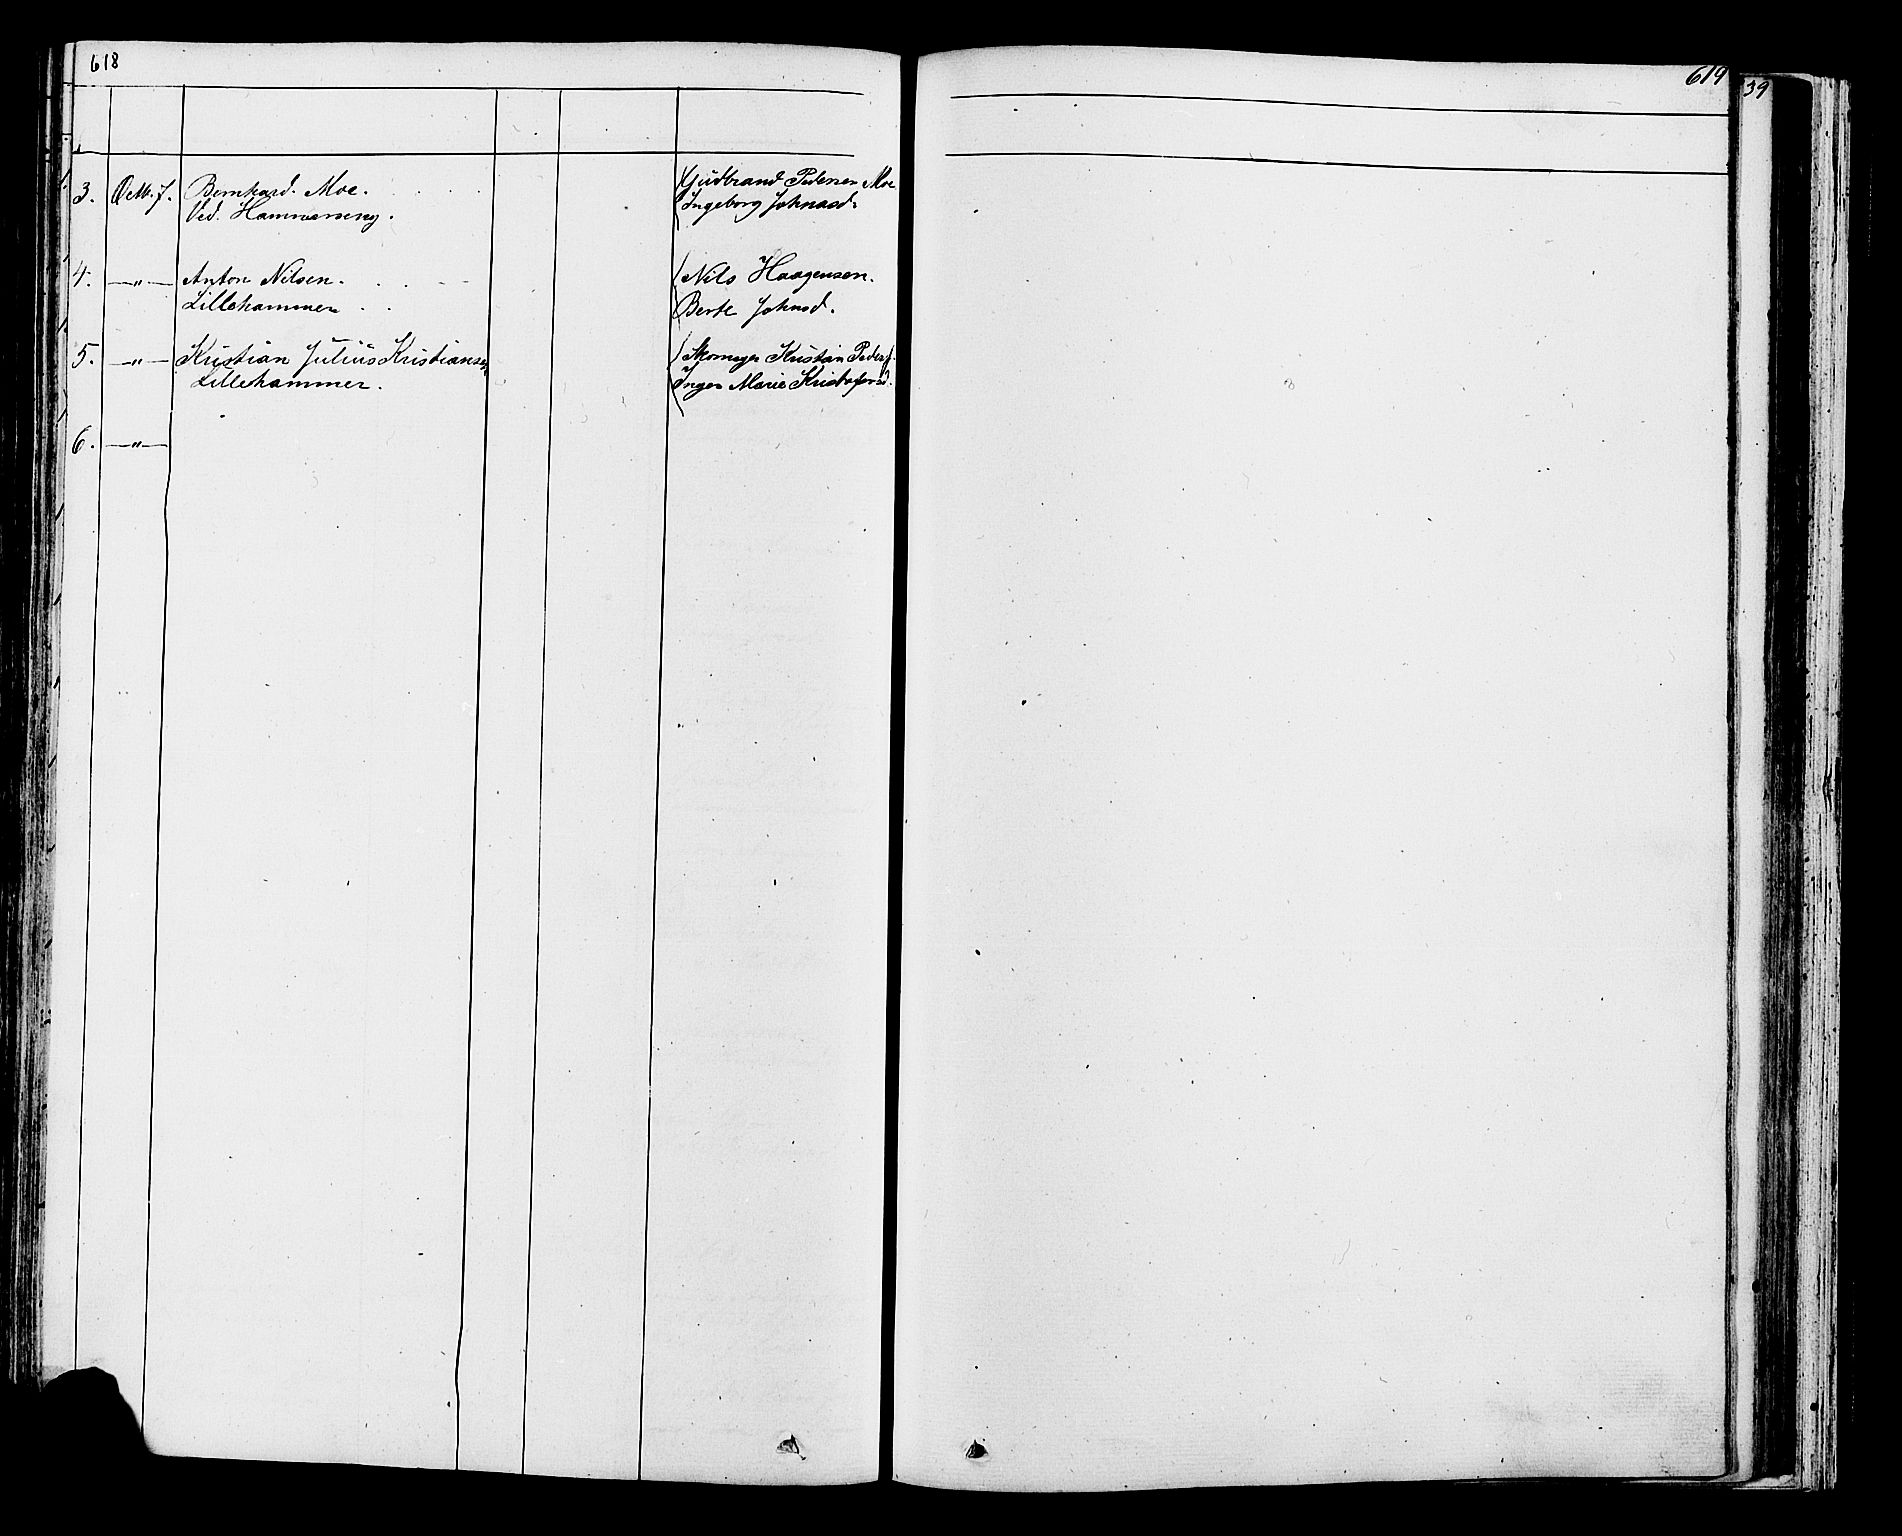 618
3. Octb. 7. Bernhard Moe. Gudbrand Pedersen Moe
Ved. Hammereng. Ingeborg Johnsd.
4. —"— Anton Nilsen. Nils Haagensen.
Lillehammer Berte Johnsd.
5. —"— Kristian Julius Kristiansen Skomager Kristian Peders.
Lillehammer. Inger Marie Kristofersd.
6. —"—
619
39